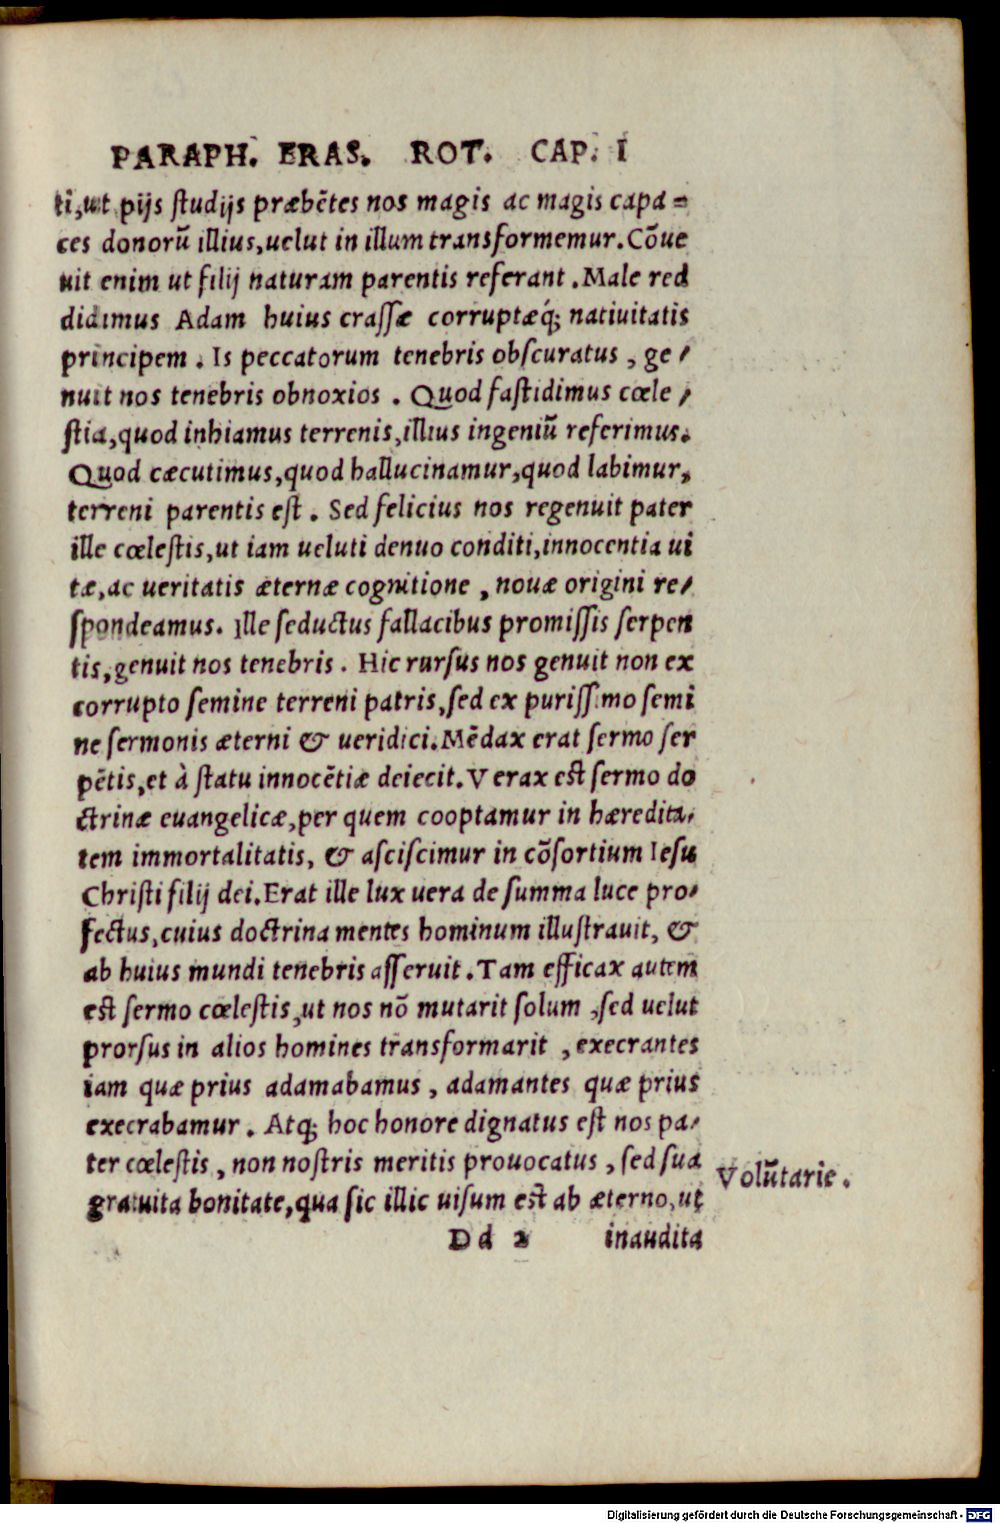 PARAPH. ERAS. ROT. CAP. I
ti,ut pijs studijs præbẽtes nos magis ac magis capa=
ces donorũ illius,uelut in illum transformemur.Cõue
nit enim ut filij naturam parentis referant.Male red
didimus Adam huius crassæ corruptæq́; natiuitatis
principem. Is peccatorum tenebris obscuratus, ge/
nuit nos tenebris obnoxios. Quod fastidimus cœle/
stia,quod inhiamus terrenis,illius ingeniũ referimus.
Quod cæcutimus,quod hallucinamur,quod labimur,
terreni parentis est. Sed felicius nos regenuit pater
ille cœlestis,ut iam ueluti denuo conditi,innocentia ui
tæ,ac ueritatis æternæ cognitione, nouæ origini re/
spondeamus. Ille seductus fallacibus promissis serpen
tis,genuit nos tenebris. Hic rursus nos genuit non ex
corrupto semine terreni patris,sed ex purissimo semi
ne sermonis æterni & ueridici.Mẽdax erat sermo ser
pẽtis,et à statu innocẽtiæ deiecit.Verax est sermo do
ctrinæ euangelicæ,per quem cooptamur in hæredita/
tem immortalitatis, & asciscimur in cõsortium Iesu
Christi filij dei.Erat ille lux uera de summa luce pro/
fectus,cuius doctrina mentes hominum illustrauit, &
ab huius mundi tenebris asseruit.Tam efficax autem
est sermo cœlestis,ut nos nõ mutarit solum,sed uelut
prorsus in alios homines transformarit, execrantes
iam quæ prius adamabamus, adamantes quæ prius
execrabamur. Atq; hoc honore dignatus est nos pa/
ter cœlestis, non nostris meritis prouocatus, sed sua
gratuita bonitate,qua sic illic uisum est ab æterno,ut
Volũtarie.
Dd 2 inaudita
Digitalisierung gefördert durch die Deutsche Forschungsgemeinschaft - DFG